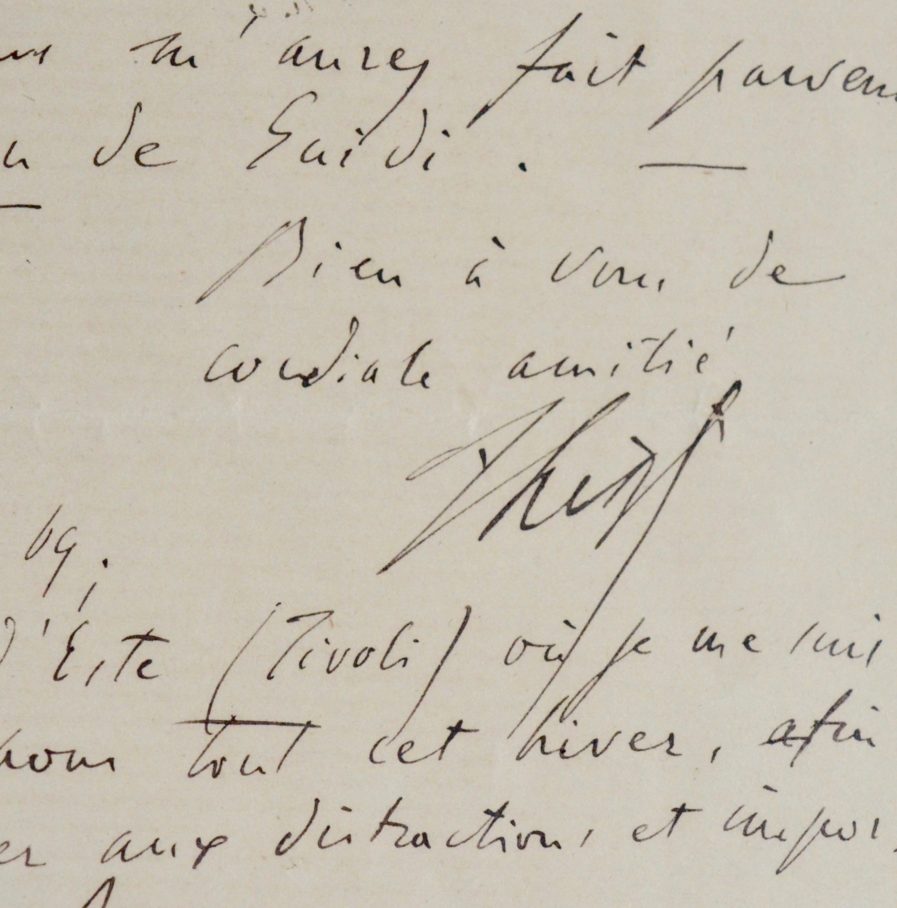 m'aurez fait parven
de Guidi. —
Bien à vous de
cordiale amitié
69,
d'Este (Tivoli) où je me suis
pour tout cet hiver, afin
er aux distractions et impor